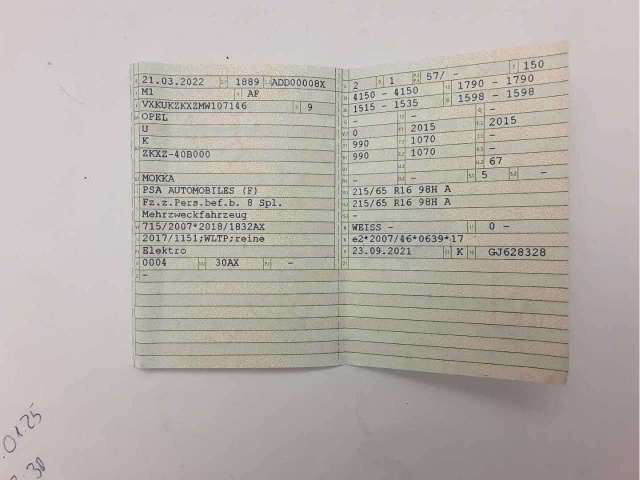 21.03.2022 1889 ADD00008X
M1 AF
VXKUKZKXZMW107146 9
OPEL
U
K
ZKXZ-40B000
MOKKA
PSA AUTOMOBILES (F)
Fz.z.Pers.bef.b. 8 Spl.
Mehrzweckfahrzeug
715/2007*2018/1832AX
2017/1151;WLTP;reine
Elektro
0004 30AX -
-
2 1 57/ - 150
4150 - 4150 1790 - 1790
1515 - 1535 1598 - 1598
- - -
0 2015 2015
990 1070 -
990 1070 -
67
- - 5 -
215/65 R16 98H A
215/65 R16 98H A
WEISS - 0 -
e2*2007/46*0639*17
23.09.2021 K GJ628328
.01.25
30